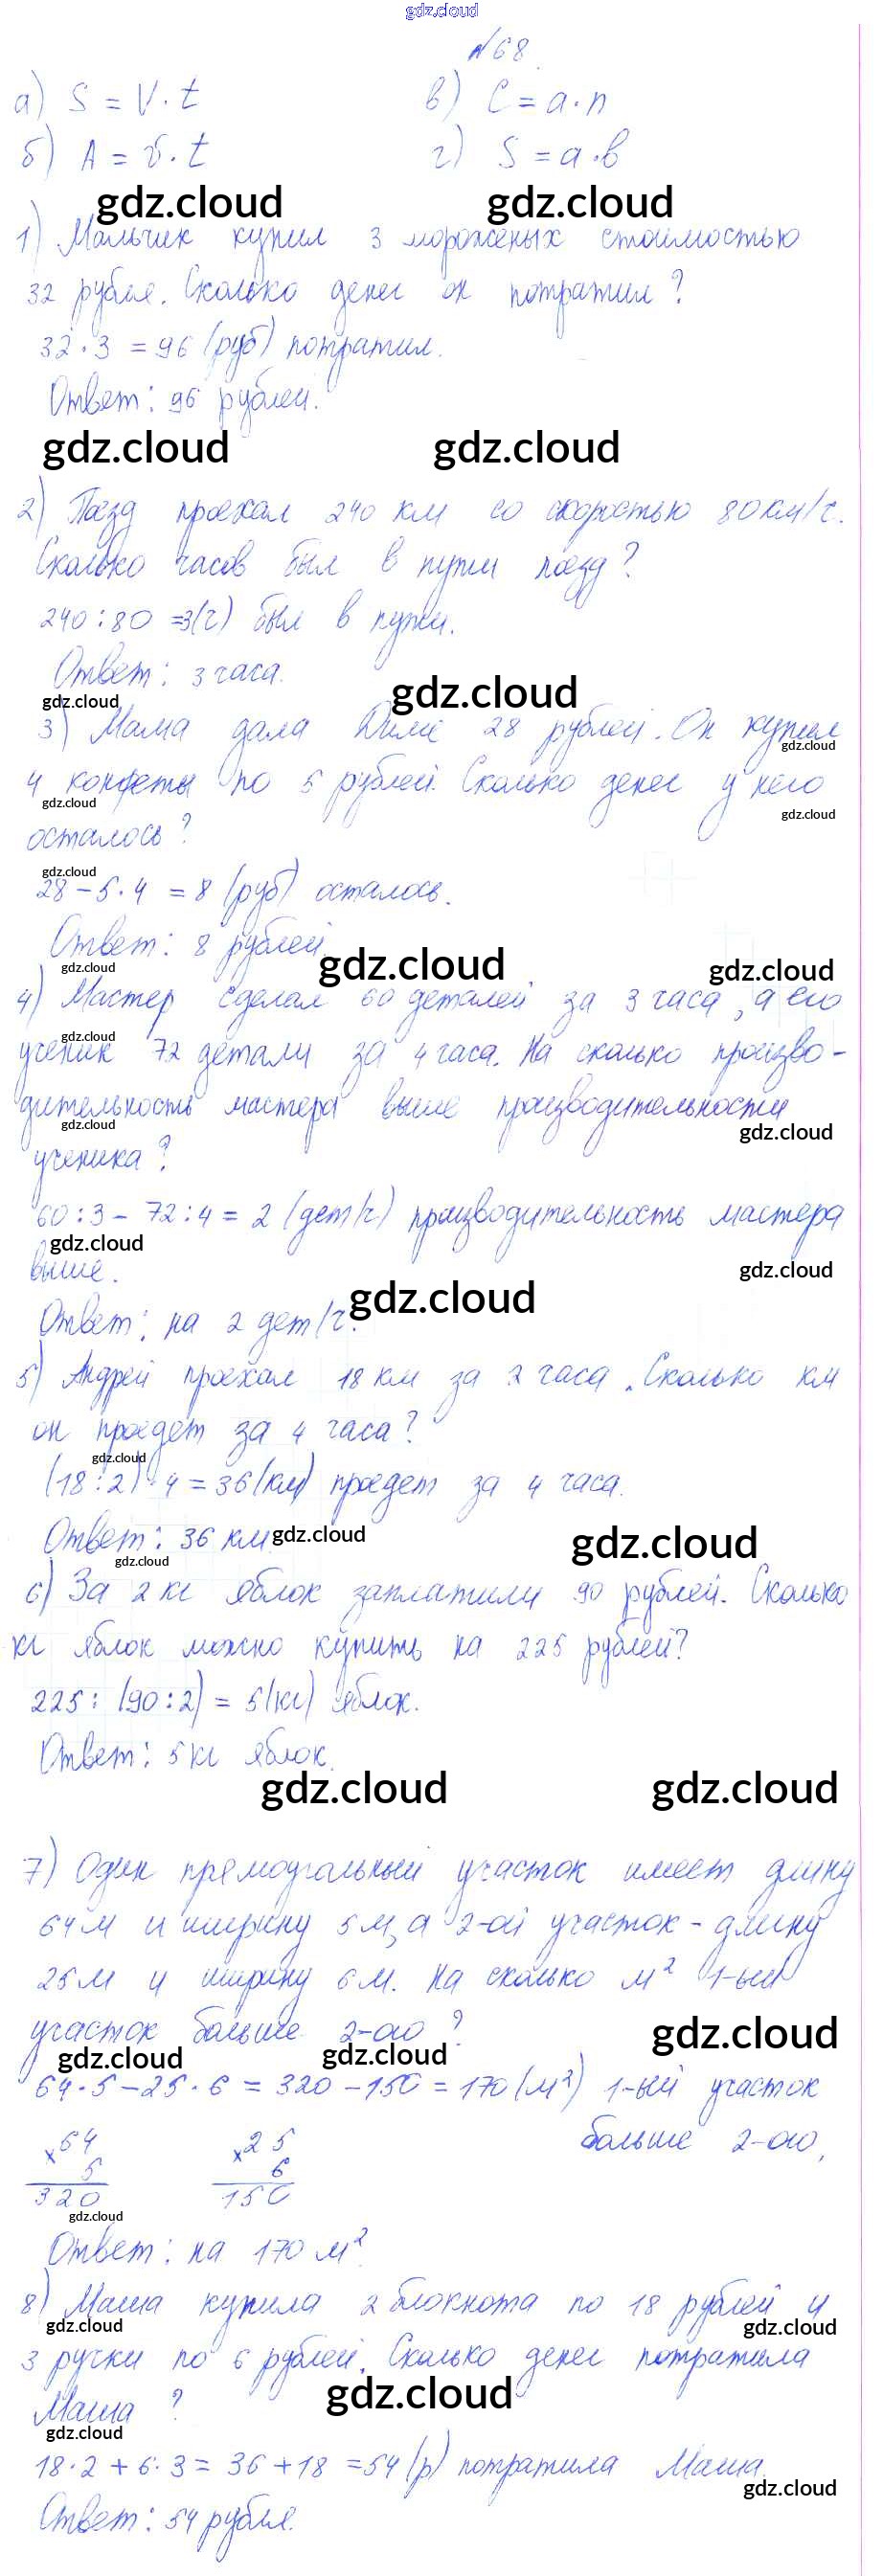 gdz.cloud
№68.
а) S = V · t в) C = a · n
б) A = v · t г) S = a · b
gdz.cloud gdz.cloud
1) Мальчик купил 3 мороженых стоимостью
32 рубля. Сколько денег он потратил?
32 · 3 = 96 (руб) потратил.
Ответ: 96 рублей.
gdz.cloud gdz.cloud
2) Поезд проехал 240 км со скоростью 80 км/ч.
Сколько часов был в пути поезд?
240 : 80 = 3(ч) был в пути.
Ответ: 3 часа.
gdz.cloud
gdz.cloud
3) Мама дала Диме 28 рублей. Он купил
gdz.cloud
4 конфеты по 5 рублей. Сколько денег у него
gdz.cloud gdz.cloud
осталось?
gdz.cloud
28 - 5 · 4 = 8 (руб) осталось.
Ответ: 8 рублей.
gdz.cloud gdz.cloud gdz.cloud
4) Мастер сделал 60 деталей за 3 часа, а его
gdz.cloud
ученик 72 детали за 4 часа. На сколько произво-
дительность мастера выше производительности
gdz.cloud gdz.cloud
ученика?
60 : 3 - 72 : 4 = 2 (дет/ч) производительность мастера
gdz.cloud
выше.
gdz.cloud
gdz.cloud
Ответ: на 2 дет/ч.
5) Андрей проехал 18 км за 2 часа. Сколько км
он проедет за 4 часа?
gdz.cloud
(18 : 2) · 4 = 36(км) проедет за 4 часа.
Ответ: 36 км.
gdz.cloud gdz.cloud
gdz.cloud
6) За 2 кг яблок заплатили 90 рублей. Сколько
кг яблок можно купить на 225 рублей?
225 : (90 : 2) = 5(кг) яблок.
Ответ: 5 кг яблок.
gdz.cloud gdz.cloud
7) Один прямоугольный участок имеет длину
64 м и ширину 5 м, а 2-ой участок - длину
25 м и ширину 6 м. На сколько м² 1-ый
участок больше 2-ого?
gdz.cloud
gdz.cloud gdz.cloud
64 · 5 - 25 · 6 = 320 - 150 = 170 (м²) 1-ый участок
больше 2-ого.
×64 ×25
5 6
320 150
gdz.cloud
Ответ: на 170 м².
8) Маша купила 2 блокнота по 18 рублей и
gdz.cloud gdz.cloud
3 ручки по 6 рублей. Сколько денег потратила
gdz.cloud
Маша?
gdz.cloud
18 · 2 + 6 · 3 = 36 + 18 = 54 (р) потратила Маша.
gdz.cloud
Ответ: 54 рубля.